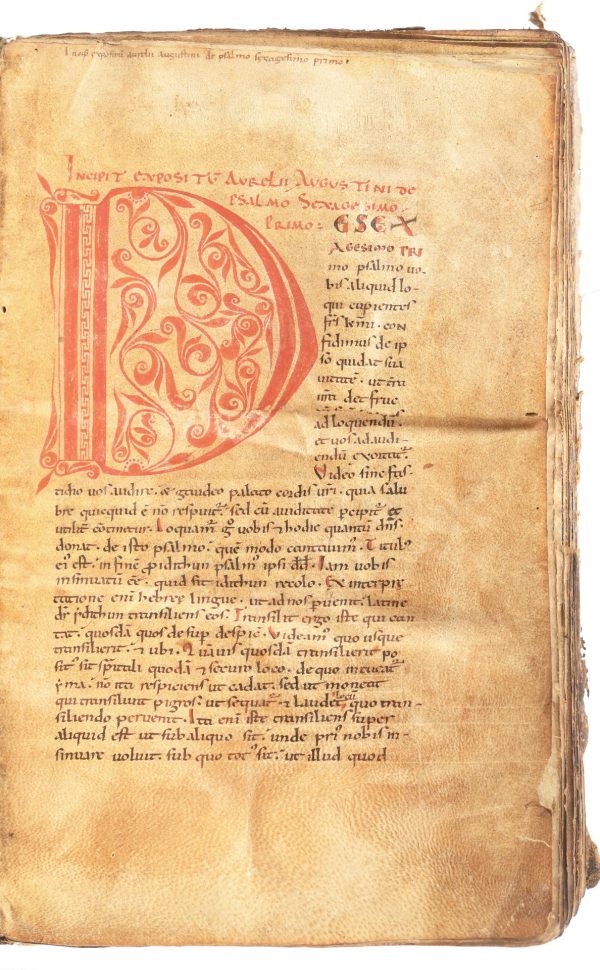 Incip expositū aurelii augustini de psalmo sexagesimo primo.
Incipit expositū Aurelii Augustini de
psalmo Sexagesimo
primo:
D E SEX
AGESIMO PRI
mo psalmo uo
bis aliquid lo
qui cupientes
frs̄ kmi. con
fidimus de ip
so qui dat sua
uitatē. ut
det frue
ad loquendū.
et uos ad audi
endū exortat᷑.
Video sine fas
tidio uos audire. & gaudeo palato cordis uri̅. quia salu
bre quicquid ē non respuit᷑. sed cū auiditate pcipit᷑ et
utilit̄ continetur. Loquam᷑ g̊ uobis & hodie quantū dn̄s
donat. de isto psalmo. quē modo cantauim᷒. Titul᷒
ei᷒ est. in finē ꝓ idithun psalm᷒ ipsi dd̄. Iam uobis
insinuatū ēē. quid sit idithun recolo. Ex interp̄
tatione eni̅ hebreę lingue. ut ad nos puenit. latine
dr̄ idithun transiliens eos. Transilit ergo iste qui can
tat. quosdā quos desup despic̄. Videam᷒ quo usque
transilierit. & ubi. Quāuis quosdā transilierit po
sit᷒ sit sp̄itali quodā & securo loco. de quo
yma. non ita respiciens ut cadat. sed ut moueat
qui transiluit pigros. ut sequat᷑ & laudet locū quo tran
siliendo peruenit. Ita eni̅ iste transiliens super
aliquid est ut sub aliquo sit. unde pri᷒ nobis in
sinuare uoluit. sub quo tut᷒ sit. ut illud quod